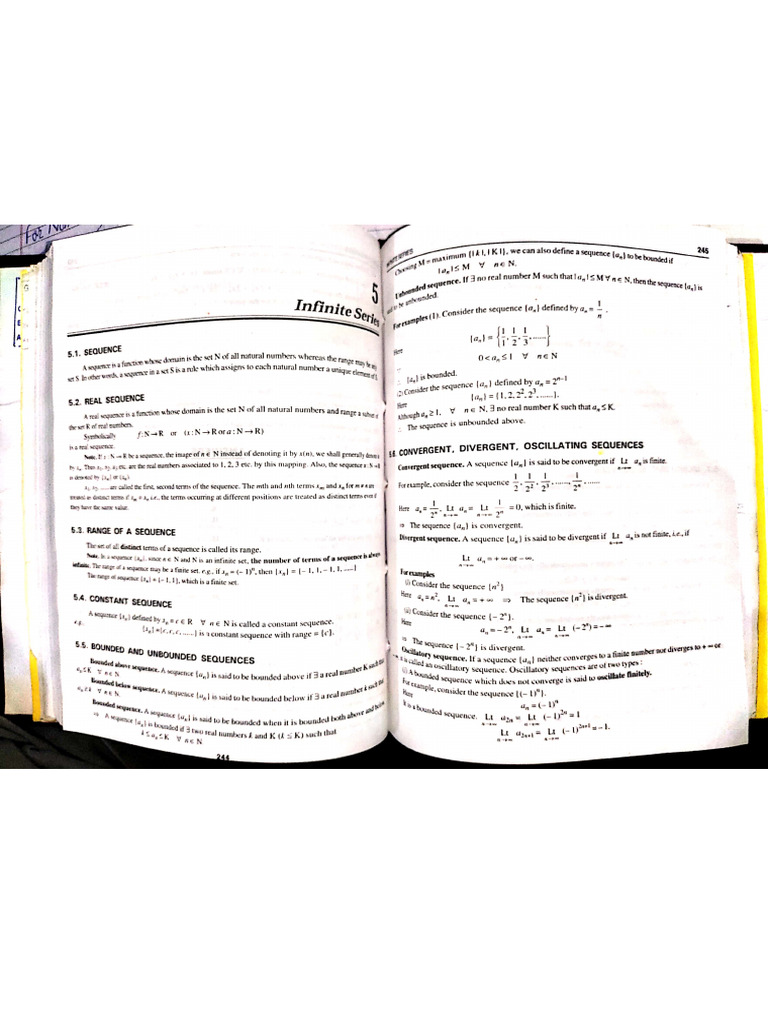 For
5
Infinite Series
5.1. SEQUENCE
A sequence is a function whose domain is the set N of all natural numbers whereas the range may be any
set S. In other words, a sequence in a set S is a rule which assigns to each natural number a unique element of S.
5.2. REAL SEQUENCE
A real sequence is a function whose domain is the set N of all natural numbers and range a subset of
the set R of real numbers.
Symbolically f : N → R or (x : N → R or a : N → R)
is a real sequence.
Note. If x : N → R be a sequence, the image of n ∈ N instead of denoting it by x(n), we shall generally denote it
by xₙ. Thus x₁, x₂, x₃ etc. are the real numbers associated to 1, 2, 3 etc. by this mapping. Also, the sequence x : N → R
is denoted by {xₙ} or (xₙ).
x₁, x₂, ..... are called the first, second terms of the sequence. The mth and nth terms xₘ and xₙ for m ≠ n are
treated as distinct terms if xₘ = xₙ i.e., the terms occurring at different positions are treated as distinct terms even if
they have the same value.
5.3. RANGE OF A SEQUENCE
The set of all distinct terms of a sequence is called its range.
Note. In a sequence {xₙ}, since n ∈ N and N is an infinite set, the number of terms of a sequence is always
infinite. The range of a sequence may be a finite set. e.g., if xₙ = (– 1)ⁿ, then {xₙ} = {– 1, 1, – 1, 1, .....}
The range of sequence {xₙ} = {– 1, 1}, which is a finite set.
5.4. CONSTANT SEQUENCE
A sequence {xₙ} defined by xₙ = c ∈ R ∀ n ∈ N is called a constant sequence.
e.g., {xₙ} = {c, c, c, ......} is a constant sequence with range = {c}.
5.5. BOUNDED AND UNBOUNDED SEQUENCES
Bounded above sequence. A sequence {aₙ} is said to be bounded above if ∃ a real number K such that
aₙ ≤ K ∀ n ∈ N.
Bounded below sequence. A sequence {aₙ} is said to be bounded below if ∃ a real number k such that
aₙ ≥ k ∀ n ∈ N.
Bounded sequence. A sequence {aₙ} is said to be bounded when it is bounded both above and below.
⇒ A sequence {aₙ} is bounded if ∃ two real numbers k and K (k ≤ K) such that
k ≤ aₙ ≤ K ∀ n ∈ N
244
INFINITE SERIES 245
Choosing M = maximum {| k |, | K |}, we can also define a sequence {aₙ} to be bounded if
| aₙ | ≤ M ∀ n ∈ N.
Unbounded sequence. If ∃ no real number M such that | aₙ | ≤ M ∀ n ∈ N, then the sequence {aₙ} is
said to be unbounded.
For examples (1). Consider the sequence {aₙ} defined by aₙ = 1/n
Here {aₙ} = {1/1, 1/2, 1/3, ......}
0 < aₙ ≤ 1 ∀ n ∈ N
∴ {aₙ} is bounded.
(2) Consider the sequence {aₙ} defined by aₙ = 2ⁿ⁻¹
Here {aₙ} = {1, 2, 2², 2³, .......}.
Although aₙ ≥ 1, ∀ n ∈ N, ∃ no real number K such that aₙ ≤ K.
∴ The sequence is unbounded above.
5.6. CONVERGENT, DIVERGENT, OSCILLATING SEQUENCES
Convergent sequence. A sequence {aₙ} is said to be convergent if Lt n→∞ aₙ is finite.
For example, consider the sequence 1/2, 1/2², 1/2³, ......, 1/2ⁿ, ......
Here aₙ = 1/2ⁿ, Lt n→∞ aₙ = Lt n→∞ 1/2ⁿ = 0, which is finite.
⇒ The sequence {aₙ} is convergent.
Divergent sequence. A sequence {aₙ} is said to be divergent if Lt n→∞ aₙ is not finite, i.e., if
Lt n→∞ aₙ = + ∞ or – ∞.
For examples
(i) Consider the sequence {n²}
Here aₙ = n², Lt n→∞ aₙ = + ∞ ⇒ The sequence {n²} is divergent.
(ii) Consider the sequence {– 2ⁿ}.
Here aₙ = – 2ⁿ, Lt n→∞ aₙ = Lt n→∞ (– 2ⁿ) = – ∞
⇒ The sequence {– 2ⁿ} is divergent.
Oscillatory sequence. If a sequence {aₙ} neither converges to a finite number nor diverges to + ∞ or
– ∞, it is called an oscillatory sequence. Oscillatory sequences are of two types :
(i) A bounded sequence which does not converge is said to oscillate finitely.
For example, consider the sequence {(– 1)ⁿ}.
Here aₙ = (– 1)ⁿ
It is a bounded sequence. Lt n→∞ a₂ₙ = Lt n→∞ (– 1)²ⁿ = 1
Lt n→∞ a₂ₙ₊₁ = Lt n→∞ (– 1)²ⁿ⁺¹ = – 1.